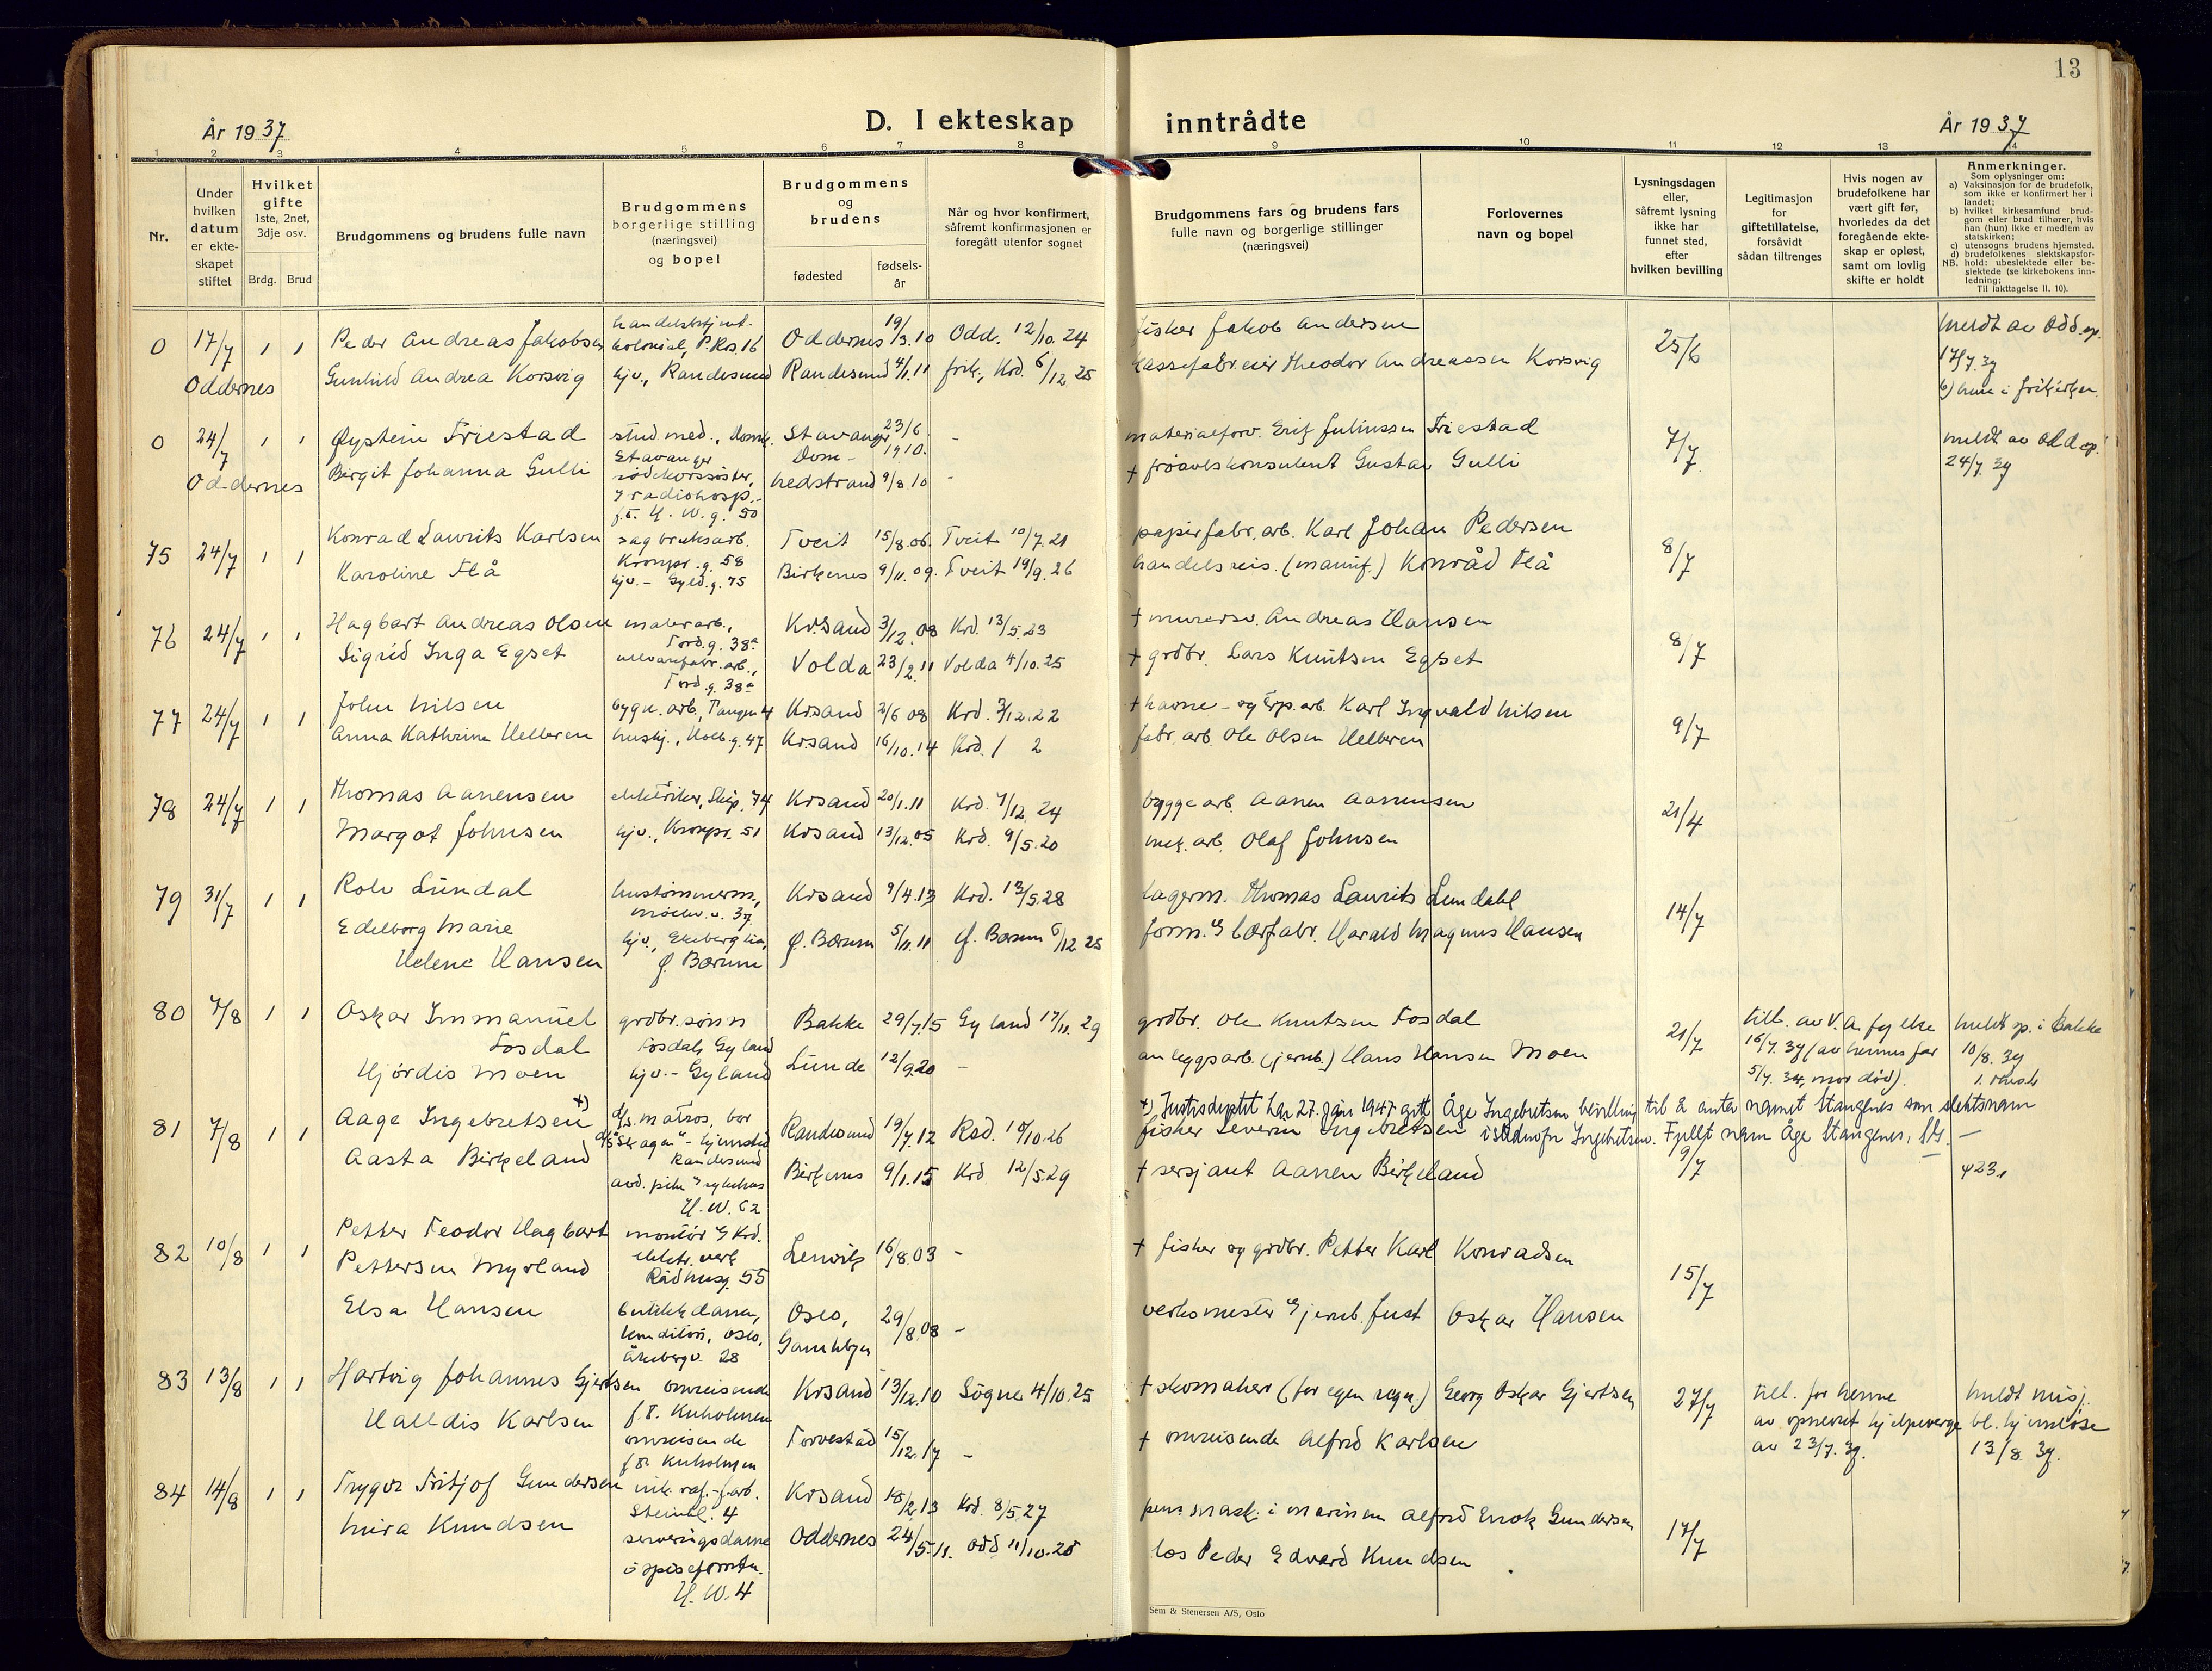 13
År 1937
D. I ekteskap inntrådte
År 1937
1 2 3 4 5 6 7 8 9 10 11 12 13 14
Nr.
Under hvilken datum er ekteskapet stiftet
Hvilket gifte 1ste, 2net, 3dje osv.
Brdg. Brud
Brudgommens og brudens fulle navn
Brudgommens borgerlige stilling (næringsvei) og bopel
Brudgommens og brudens
fødested
fødselsår
Når og hvor konfirmert, såfremt konfirmasjonen er foregått utenfor sognet
Brudgommens fars og brudens fars fulle navn og borgerlige stillinger (næringsvei)
Forlovernes navn og bopel
Lysningsdagen eller, såfremt lysning ikke har funnet sted, efter hvilken bevilling
Legitimasjon for giftetillatelse, forsåvidt sådan tiltrenges
Hvis nogen av brudefolkene har vært gift før, hvorledes da det foregående ekteskap er opløst, samt om lovlig skifte er holdt
Anmerkninger.
Som oplysninger om:
a) Vaksinasjon for de brudefolk, som ikke er konfirmert her i landet;
b) hvilket kirkesamfund brudgom eller brud tilhører, hvis han (hun) ikke er medlem av statskirken;
c) utensogns brudens hjemsted.
d) brudefolkenes slektskapsforhold: ubeslektede eller beslektede (se kirkebokens innledning;
NB. Til iakttagelse II, 10).
0 17/7 1 1 Peder Andreas Jakobsen handelsbetjent kolonial, P.Krs. 16 Oddernes 19/3.10 Odd. 12/10.24 fisker Jakob Andersen 25/6 meldt av Odd. sp.
Oddernes Gunhild Andrea Korsvig hjv., Randesund Randesund 4/1.11 frik., Krd. 6/12.25 kassefabr.eier Theodor Andreassen Korsvig 17/7.37
b) hun i frikirken
0 24/7 1 1 Øystein Friestad stud.med., Domk. Stavanger Stavanger Dom- 23/6 1910. - materialforv. Erik Juliussen Friestad 7/7. meldt av Odd. sp.
Oddernes Birgit Johanna Gulli rødekorssøster, radiohosp. f.t. H.W.g. 50 Nedstrand 9/8.10 - + frøavlskonsulent Gustav Gulli 24/7.37
75 24/7 1 1 Konrad Laurits Karlsen sagbruksarb. Kronpr.g. 58 Tveit 15/8.06. Tveit 10/7.21 papirfabr.arb. Karl Johan Pedersen 8/7
Karoline Flå hjv.- Gyld.g. 75 Birkenes 9/11.09. Tveit 19/9.26 handelsreis. (manuf.) Konråd Flå
76 24/7 1 1 Hagbart Andreas Olsen malerarb., Tord.g. 38a Kr.sand 3/12.08 Krd. 13/5.23 + murersv. Andreas Hansen 8/7
Sigrid Inga Egset ullvarefabr.arb., Tord.g. 38a Volda 23/2.11 Volda 4/10.25 + grdbr. Lars Knutsen Egset
77 24/7 1 1 John Nilsen bygn.arb., Tangen 4 Kr.sand 2/6 08 Krd. 3/12.22 + havne- og erp.arb. Karl Ingvald Nilsen 9/7
Anna Kathrine Helleren hushj., Holb.g. 47 Kr.sand 16/10.14 Krd. / 2 fabr.arb. Ole Olsen Helleren
78 24/7 1 1 Thomas Aanensen elektriker, Skip. 74 Kr.sand 20/1.11 Krd. 7/12.24 byggearb. Aanen Aanensen 21/4
Margot Johnsen hjv., Kronpr. 51 Kr.sand 13/12.05 Krd. 9/5.20 mek.arb. Olaf Johnsen
79 31/7 1 1 Rolv Lundal hustømmerm., Møllev. v. 37 Kr.sand 9/4.13 Krd. 13/5.28 lagerm. Thomas Laurits Lundahl 14/7
Edelborg Marie Helene Hansen hjv., Ekeberglia, Ø. Bærum Ø. Bærum 5/11.11 Ø. Bærum 6/12.25 form. bærfabr. Harald Magnus Hansen
80 7/8 1 1 Oskar Immanuel Fosdal grdbr.sønn Fosdal, Gyland Bakke 29/7.15 Gyland 17/11.29 grdbr. Ole Knutsen Fosdal 21/7 till. av V.A. fylke 16/7.37 (av hennes far 5/7.37, mor død). meldt sp. i Bakke 10/8.37
Hjørdis Moen hjv.- Gyland Lunde 12/9.20 - anleggsarb. (jernb.) Hans Hansen Moen
+) Justisdeptet har 27. jan 1947 gitt Åge Ingebretsen bevilling til å anta navnet Stangenes som slektsnavn istedenfor Ingebretsen. Fullt navn Åge Stangenes.
81 7/8 1 1 Aage Ingebretsen +) d/s. matros, bor d/s "Skagen" - hjemsted Randesund Randesund 19/7.12 Rsd. 10/10.26 fisker Severin Ingebretsen 9/7
Aasta Birkeland avd.pike sykehus H.W. 62 Birkenes 9/1.15 Krd 12/5.29 + sersjant Aanen Birkeland
82 10/8 1 1 Petter Teodor Hagbart Pettersen Myrland montør Krd. elektr. verk Rådhusg. 55 Lenvik 16/8.03 - + fisker og grdbr. Petter Karl Konradsen 15/7
Elsa Hansen butikkdame, konditori, Oslo, Åkebergv. 28 Oslo, Gamlebyen 29/8.08 - verksmester jernb. Just Oskar Hansen
83 13/8 1 1 Hartvig Johannes Gjertsen omreisende f.t. Kuholmen Kr.sand 13/12.10 Søgne 4/10.25 + skomaker (for egen regn.) Georg Oskar Gjertsen 27/7 till. for henne av opnevnt hjelpeverge av 23/7.37. meldt misj. bl. hjemløse 13/8.37.
Halldis Karlsen omreisende f.t. Kuholmen Torvestad 15/12.17 - + omreisende Alfred Karlsen
84 14/8 1 1 Trygve Fritjof Gundersen nik.raf.-f.arb. Steinkl. 4 Kr.sand 18/2.13 Krd. 8/5.27 pens. mask. i marinen Alfred Enok Gundersen 17/7
Mira Knudsen serveringsdame i spiseforretn. H.W. 4 Oddernes 24/5.11. Odd 11/10.25 los Peder Edvard Knudsen
Sem & Stenersen A/S, Oslo